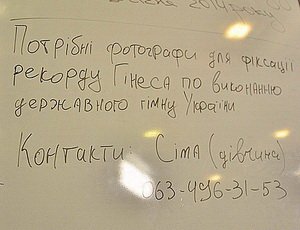 2014 року
Потрібні фотографи для фіксації
рекорду Гінеса по виконанню
державного гімну України
Контакти: Сіма (дівчина)
063-496-31-53